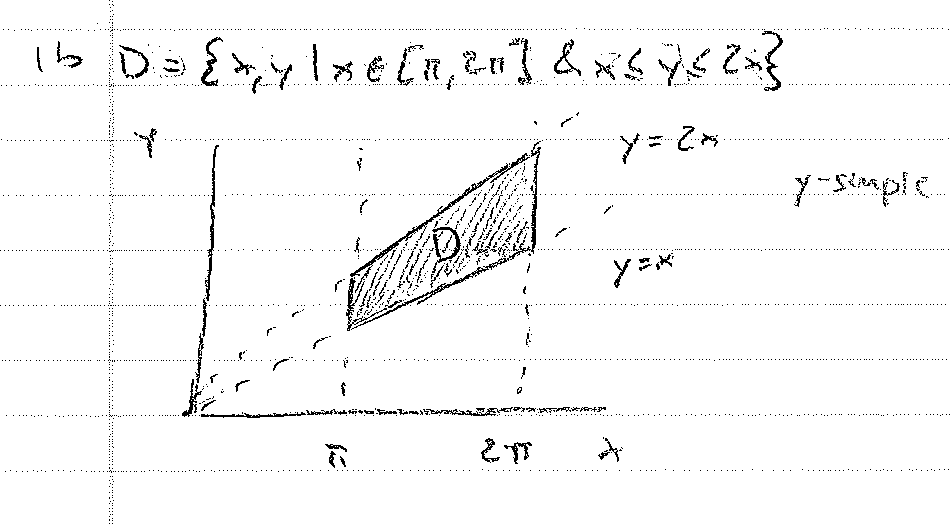 1b D = {x,y | x ∈ [π, 2π] & x ≤ y ≤ 2x}
Y
y = 2x
y-simple
D
y = x
π 2π x